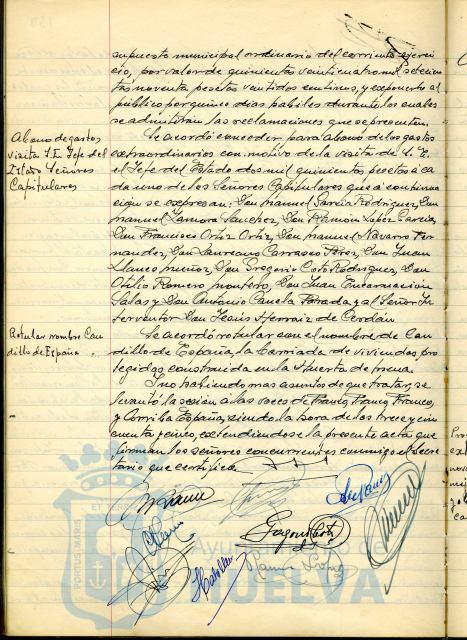 supuesto municipal ordinario del corriente ejerci-
cio, por valor de quinientas veinticuatro mil setecien
tas noventa pesetas veintidos centimos, y exponerlo al
público por quince dias habiles durante los cuales
se admitirán las reclamaciones que se presenten.
Abono de gastos
visita S.E. Jefe del
Estado Señores
Capitulares
Se acordó conceder para abono de los gastos
extraordinarios con motivo de la visita de S. E.
el Jefe del Estado dos mil quinientas pesetas a ca
da uno de los Señores Capitulares que a continua
ción se expresan; Don Manuel García Rodriguez, Don
Manuel Zamora Sanchez, Don Ramón Lopez García,
Don Francisco Ortiz Ortiz, Don Manuel Navarro Fer
nandez, Don Laureano Carrasco Perez, Don Juan
Llanes Muñoz, Don Gregorio Coto Rodriguez, Don
Otilio Romero Montero, Don Juan Encarnación
Salas y Don Antonio Canela Parada y al Señor In
terventor Don Jesús Herraiz de Cerdán
Rotular nombre Cau
dillo de España
Se acordó rotular con el nombre de Cau
dillo de España, la barriada de viviendas pro
tegidas construida en la Huerta de Mena.
Y no habiendo mas asuntos de que tratar, se
levantó la sesión a las voces de Franco, Franco, Franco,
y Arriba España, siendo la hora de las trece y cin
cuenta y cinco, extendiendose la presente acta que
firman los señores concurrentes conmigo el Secre
tario que certifico.
PORTUS MARIS
Ayuntamiento de
HUELVA